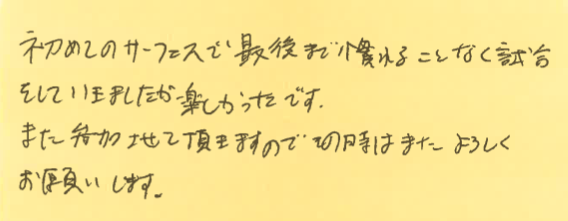 初めてのサーフェスで最後まで慣れることなく試合
をしていましたが楽しかったです.
また参加させて頂きますのでその時はまたよろしく
お願いします。